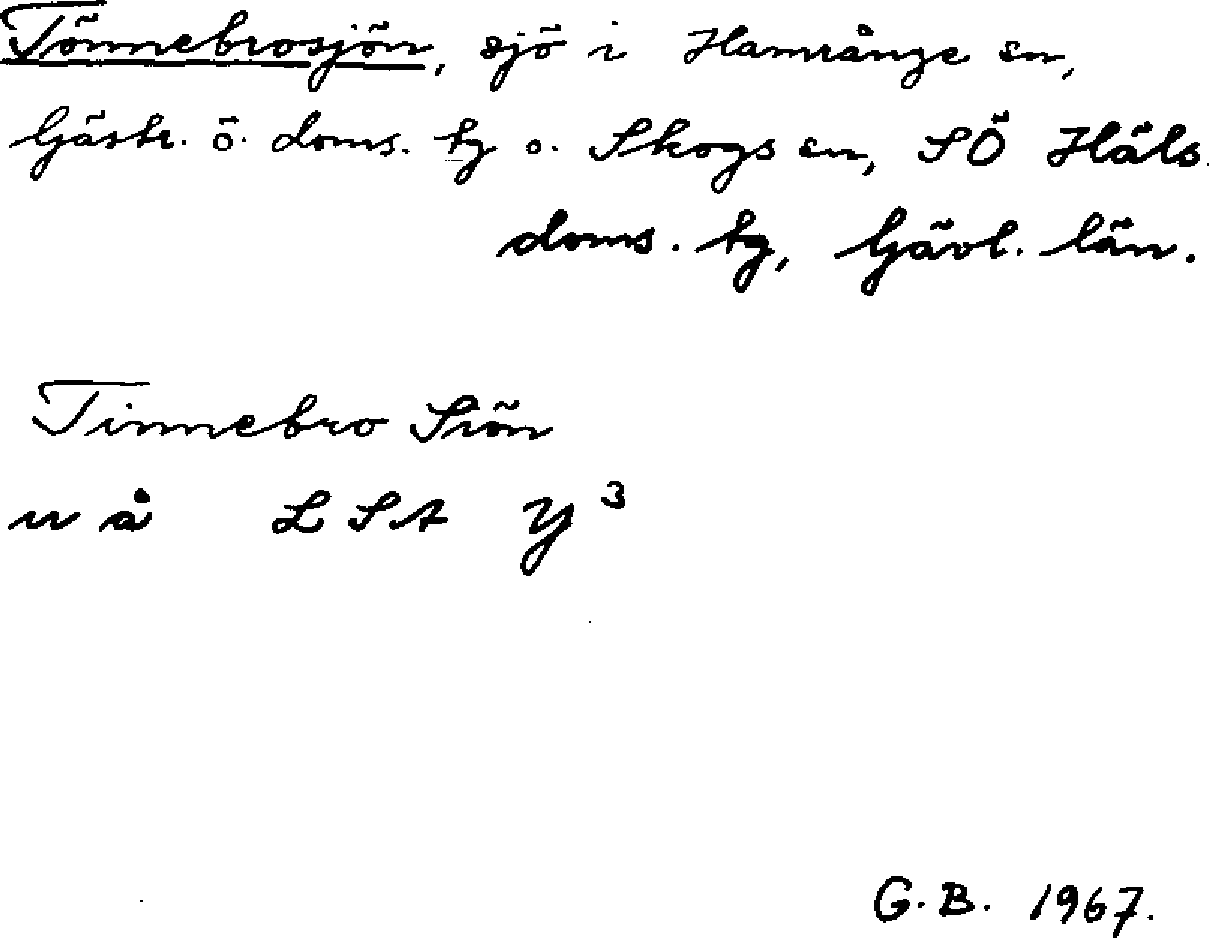 Tönnebrosjön, sjö i Hamrånge sn,
Gästr. ö. doms. tg o. Skogs sn, SÖ Häls.
doms. tg, Gävl. län.
Tinnebro Siön
u å LSA Y3
G.B. 1967.